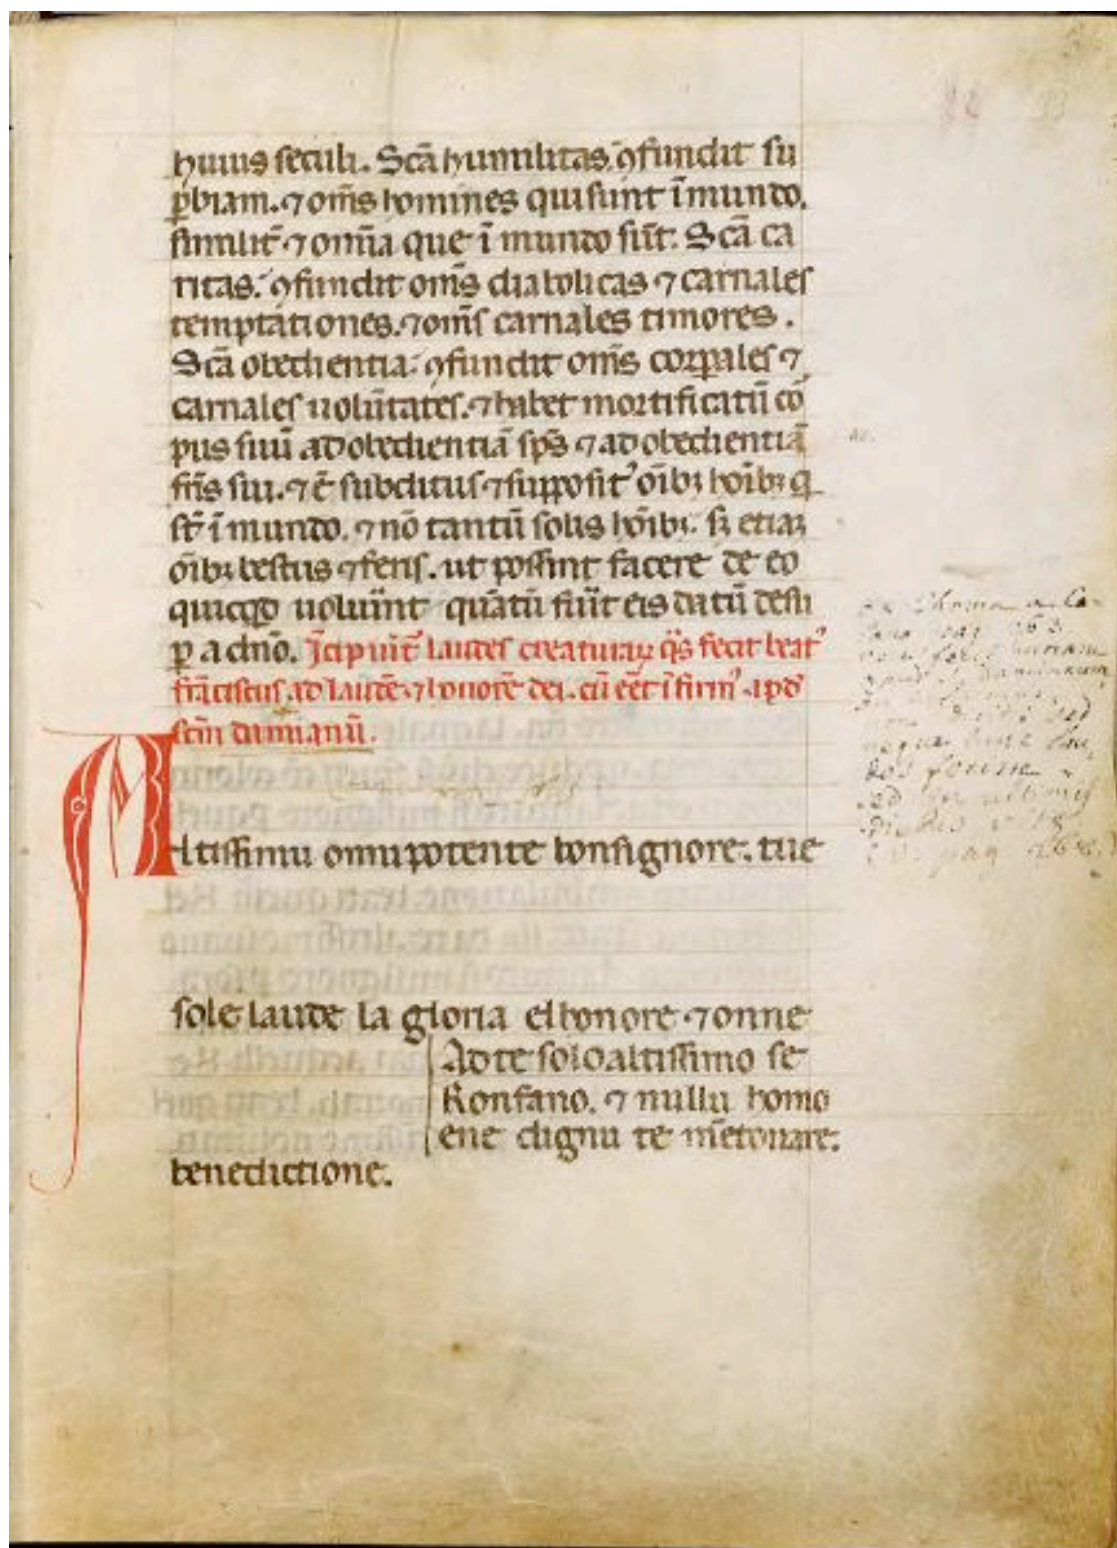 huius seculi. Scā humilitas. ꝯfundit su
ꝑbiam. ⁊ om̄s homines qui sunt ī mundo.
similit̄ ⁊ om̄ia que ī mundo sūt. Scā ca
ritas. ꝯfundit om̄s diabolicas ⁊ carnales
temptationes. ⁊ om̄s carnales timores.
Scā obedientia. ꝯfundit om̄s corꝑales ⁊
carnales uolūtates. ⁊ habet mortificatū cor̄
pus suū ad obedientiā sp̄s ⁊ ad obedientiā
fr̄is sui. ⁊ ē subditus ⁊ supposit᾽ oībꝫ hoībꝫ q̄
st̄ ī mundo. ⁊ nō tantū solis hoībꝫ. sꝫ etiaꝫ
oībꝫ bestiis ⁊ feris. ut possint facere de eo
quicqd̄ uoluīnt quātū fūit eis datū desu
ꝑ a dn̄o. Īcipiūt laudes creaturaꝝ q̄s fecit beat᾽
frāciscus ad laudē ⁊ honorē dei. cū eēt īfirm᾽ apd̄
sc̄m damianū.
Altissimu omnipotente bonsignore. tue
sole laude la gloria elhonore ⁊ onne
Ad te solo altissimo se
Konfano. ⁊ nullu homo
ene dignu te mētouare.
benedictione.